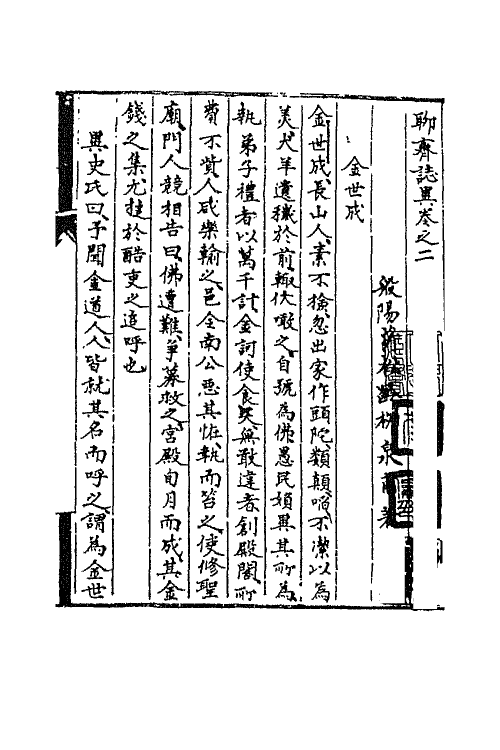 聊齋誌異卷之二
般陽
金世成
金世成長山人素不檢忽出家作頭陀類顛啗不潔以為
美犬羊遺穢於前輒伏噉之自號為佛愚民婦異其所為
執弟子禮者以萬千計金訶使食矢無敢違者創殿閣所
費不貲人咸樂輸之邑令南公惡其怪執而笞之使修聖
廟門人競相告曰佛遭難爭募救之宮殿旬月而成其金
錢之集尤捷於酷吏之追呼也
異史氏曰予聞金道人人皆就其名而呼之謂為金世